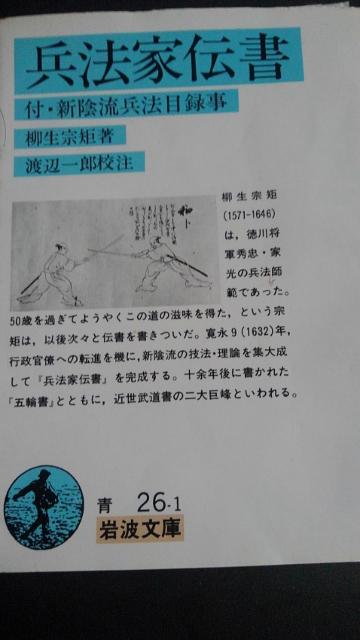 兵法家伝書
付・新陰流兵法目録事
柳生宗矩著
渡辺一郎校注
柳生宗矩
(1571-1646)
は，徳川将
軍秀忠・家
光の兵法師
範であった。
50歳を過ぎてようやくこの道の滋味を得た，という宗
矩は，以後次々と伝書を書きついだ。寛永9(1632)年，
行政官僚への転進を機に，新陰流の技法・理論を集大成
して『兵法家伝書』を完成する。十余年後に書かれた
『五輪書』とともに，近世武道書の二大巨峰といわれる。
青 26-1
岩波文庫